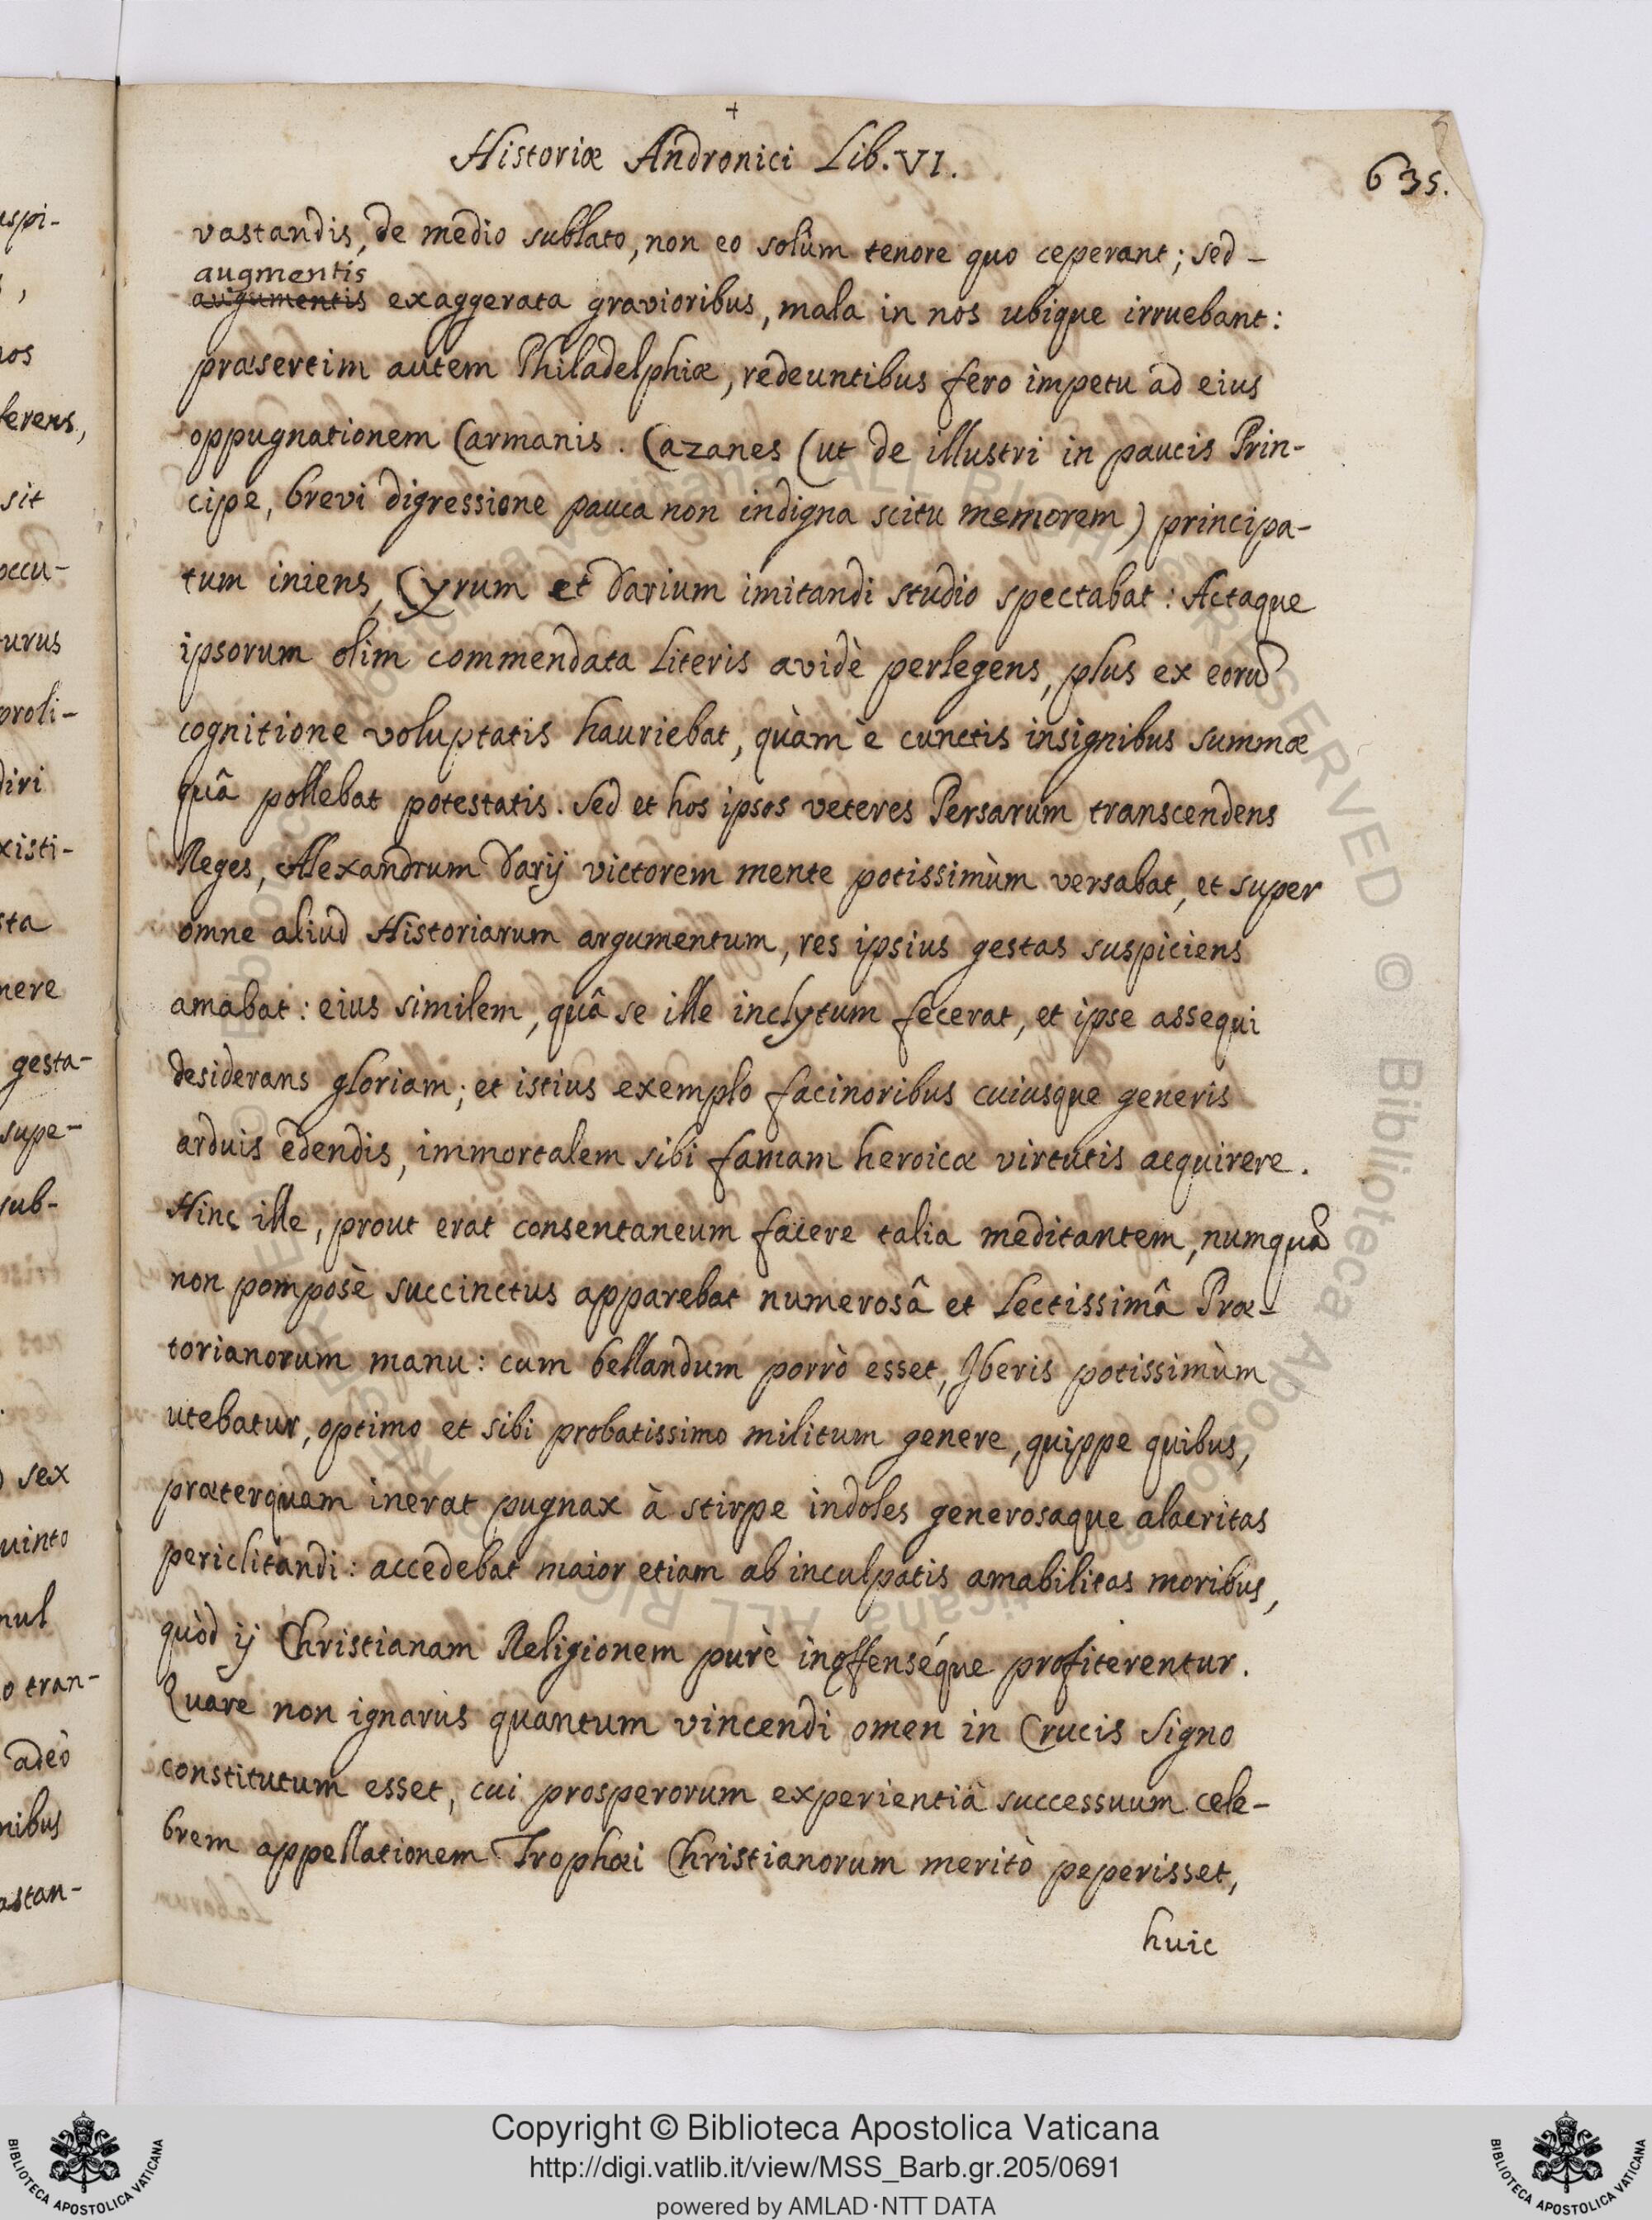 +
Historiæ Andronici Lib. VI.
635.
vastandis, de medio sublato, non eo solùm tenore quo ceperant; sed -
augmentis
augumentis exaggerata gravioribus, mala in nos ubique irruebant:
præsertim autem Philadelphiæ, redeuntibus fero impetu ad eius
oppugnationem Carmanis. Cazanes (ut de illustri in paucis Prin-
cipe, brevi digressione pauca non indigna scitu memorem) principa-
tum iniens, Cyrum et Darium imitandi studio spectabat: Actaque
ipsorum olim commendata Literis avidè perlegens, plus ex eorū
cognitione voluptatis hauriebat, quàm è cunctis insignibus summæ
quâ pollebat potestatis. Sed et hos ipsos veteres Persarum transcendens
Reges, Alexandrum Darij victorem mente potissimùm versabat, et super
omne aliud Historiarum argumentum, res ipsius gestas suspiciens
amabat: eius similem, quâ se ille inclytum fecerat, et ipse assequi
desiderans gloriam; et istius exemplo facinoribus cuiusque generis
arduis edendis, immortalem sibi famam heroicæ virtutis acquirere.
Hinc ille, prout erat consentaneum facere talia meditantem, numquā
non pomposè succinctus apparebat numerosâ et Lectissimâ Præ-
torianorum manu: cum bellandum porrò esset, Iberis potissimùm
utebatur, optimo et sibi probatissimo militum genere, quippe quibus,
præterquam inerat pugnax à stirpe indoles generosaque alacritas
periclitandi: accedebat maior etiam ab inculpatis amabilitas moribus,
quòd ij Christianam Religionem purè inoffenséque profiterentur.
Quare non ignarus quantum vincendi omen in Crucis Signo
constitutum esset, cui prosperorum experientiâ successuum cele-
brem appellationem Trophæi Christianorum meritò peperisset,
huic
uspi-
,
nos
ferens,
sit
occu-
turus
proli-
diri
xisti-
sta
nere
gesta-
supe-
sub-
sex
uinto
mul
o tran-
adeò
nibus
astan-
Copyright © Biblioteca Apostolica Vaticana
http://digi.vatlib.it/view/MSS_Barb.gr.205/0691
powered by AMLAD·NTT DATA
BIBLIOTECA APOSTOLICA VATICANA
BIBLIOTECA APOSTOLICA VATICANA